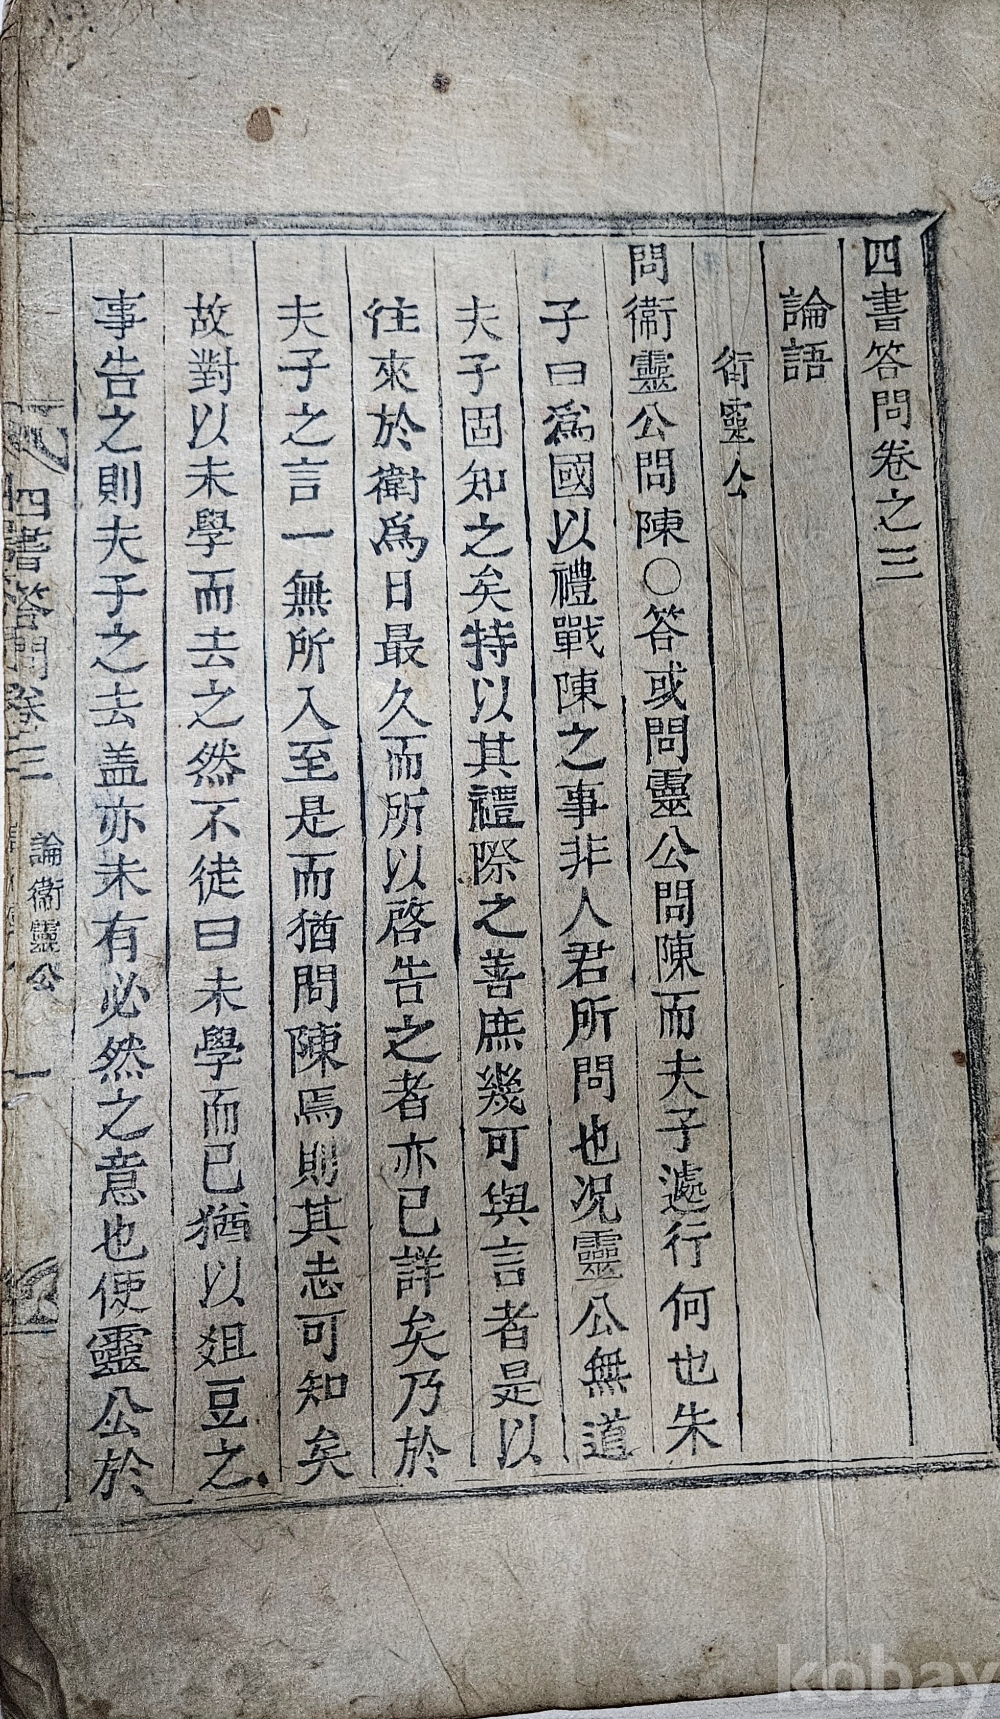 四書答問卷之三
論語
衛靈公
問衛靈公問陳○答或問靈公問陳而夫子遽行何也朱
子曰爲國以禮戰陳之事非人君所問也况靈公無道
夫子固知之矣特以其禮際之善庶幾可與言者是以
往來於衛爲日最久而所以啓告之者亦已詳矣乃於
夫子之言一無所入至是而猶問陳焉則其志可知矣
故對以未學而去之然不徒曰未學而已猶以爼豆之
事告之則夫子之去盖亦未有必然之意也便靈公於
四書答問卷三
論衛靈公
一
kobay